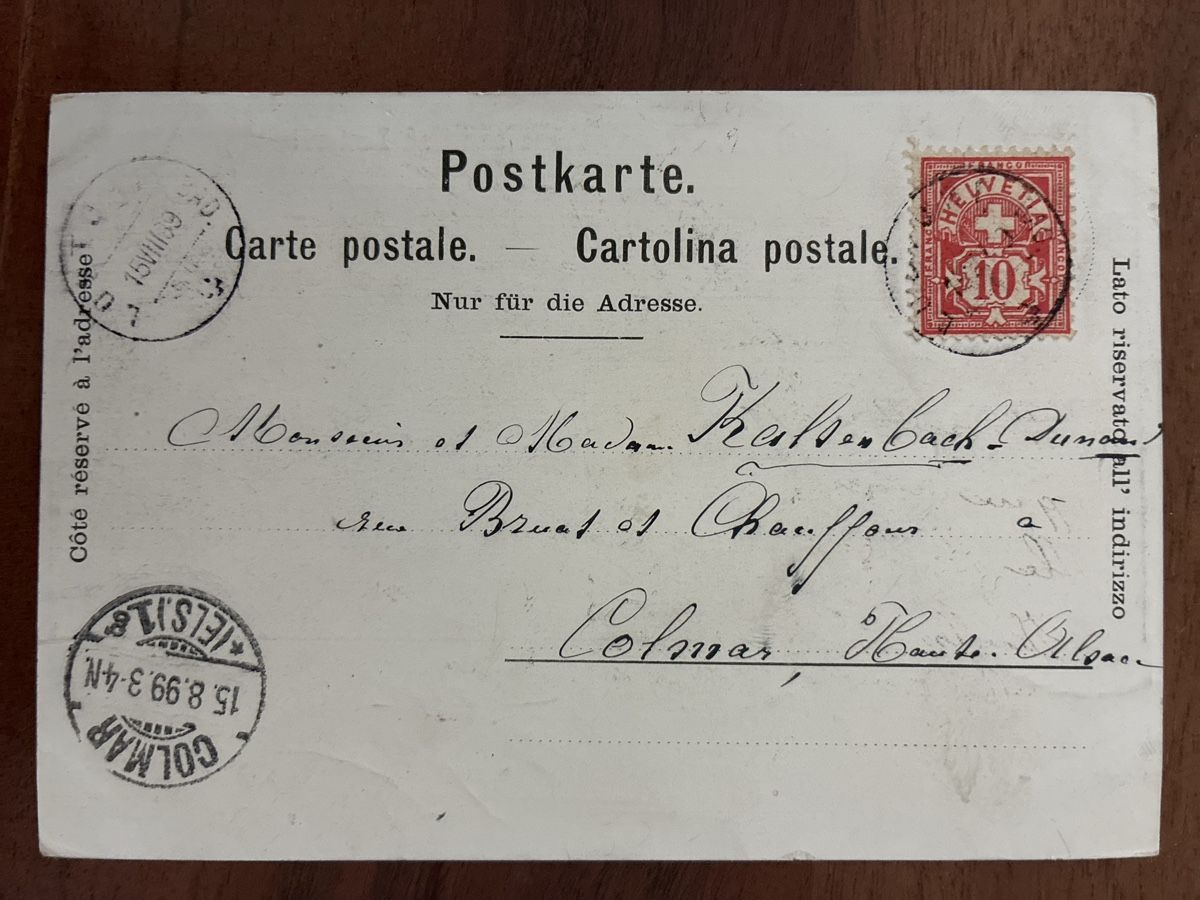 Postkarte.
Carte postale. — Cartolina postale.
Nur für die Adresse.
Côté réservé à l'adresse
Lato riservato all' indirizzo
FRANCO
HELVETIA
FRANCO
FRANCO
10
15 VIII 99
Monsieur et Madame Kaltenbach-Dunant
rue Bruat et Chauffour a
Colmar, Haute-Alsace
COLMAR
15.8.99.3-4N.
*(ELS.)1